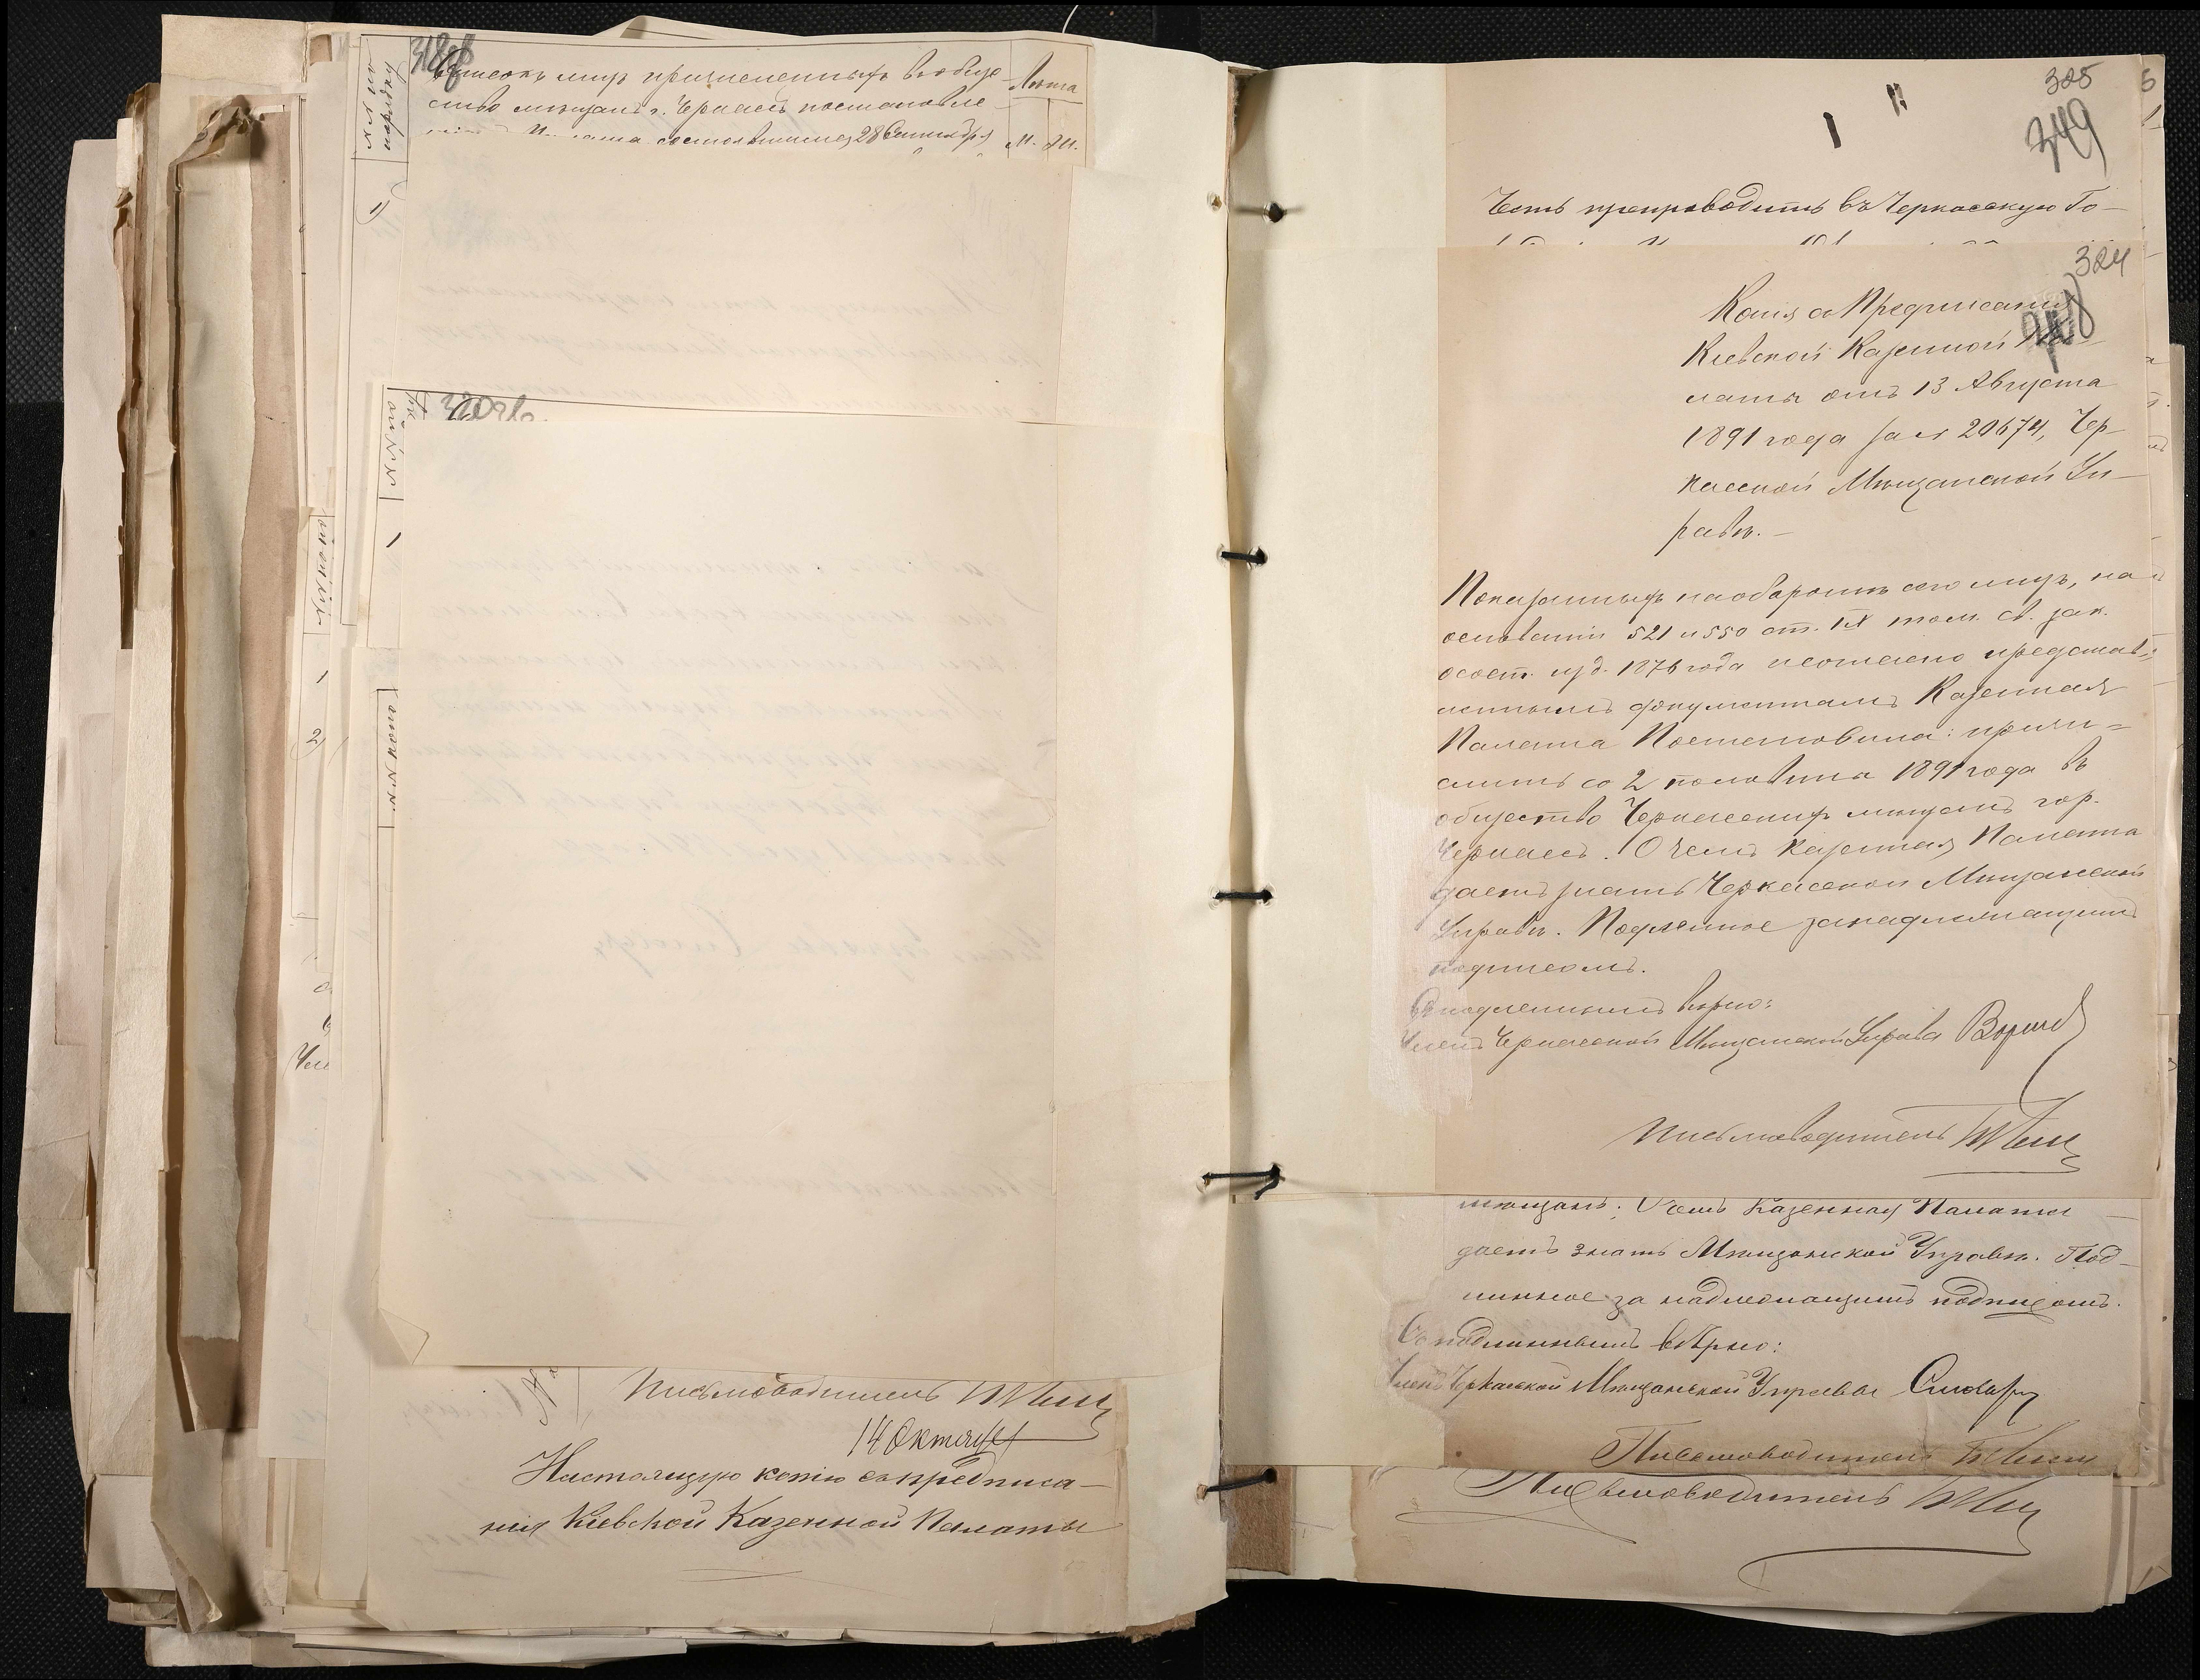 318об
№№ по порядку
Списокъ лицъ причисленныхъ въ обще-
ство мѣщанъ г. Черкасъ постановле-
состоявшимся 28 Сентября
Лѣта
М. Ж.
1)
320об.
№№ по
1
№№ по поп
1
2)
Чле
Письмоводитель
14 Октября
Настоящую копію съ предписа-
нія Кіевской Казенной Палаты
325
349
Честь препроводить въ Черкасскую Го-
324
Копія съ Предписанія
Кіевской Казенной Па-
латы отъ 13 Августа
1891 года за № 20674, Чер-
касской Мѣщанской Уп-
равѣ.-
Показанныхъ на оборотѣ сего лицъ, на
основаніи 521 и 550 ст. IX том. св. зак.
о сост. изд. 1876 года и согласно представ-
леннымъ документамъ Казенная
Палата Постановила: причи-
слить со 2 половины 1891 года въ
общество Черкасскихъ мѣщанъ гор.
Черкасъ. О чемъ Казенная Палата
даетъ знать Черкасской Мѣщанской
Управѣ. Подлинное за надлежащимъ
подписомъ.
Съ подлиннымъ вѣрно:
Членъ Черкасской Мѣщанской Управы
Письмоводитель
мѣщанъ. О чемъ Казенная Палата
даетъ знать Мѣщанской Управѣ. Под-
линное за надлежащимъ подписомъ.
Съ подлиннымъ вѣрно:
Членъ Черкасской Мѣщанской Управы
Письмоводитель
Письмоводитель